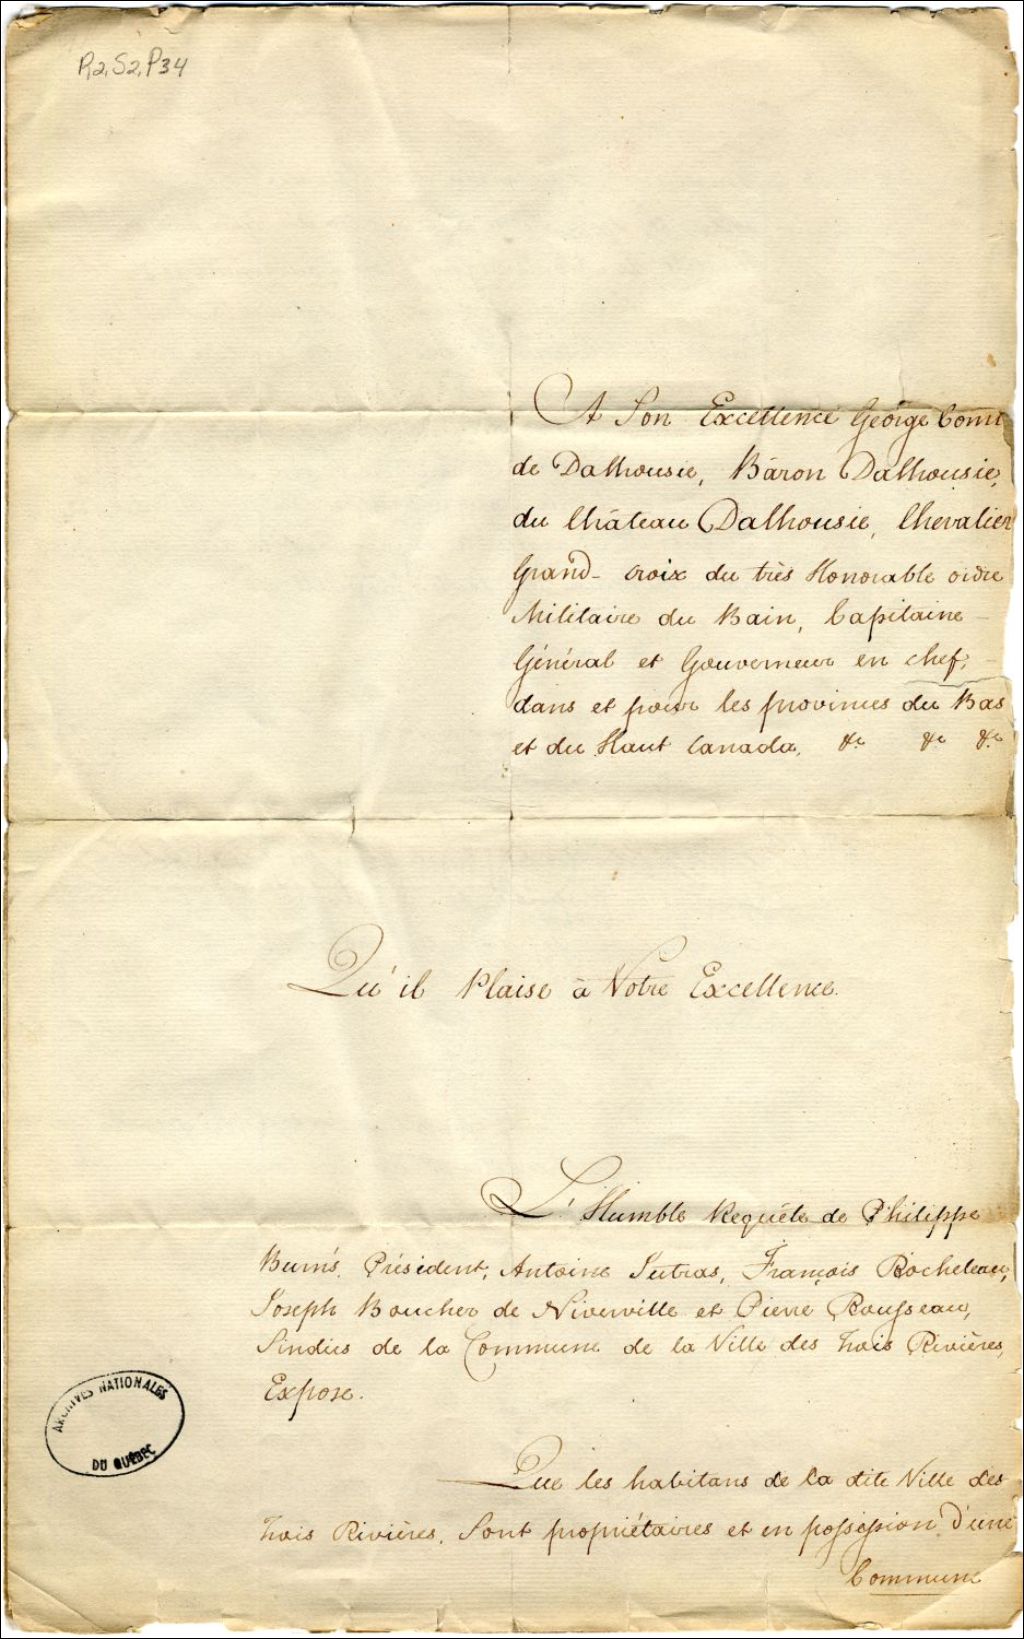 R2,S2,P34
A Son Excellence George Comte
de Dalhousie, Baron Dalhousie,
du Château Dalhousie, Chevalier
Grand-croix du très Honorable ordre
Militaire du Bain, Capitaine
Général et Gouverneur en chef,
dans et pour les provinces du Bas
et du Haut Canada, &c &c &c
Qu'il Plaise à Votre Excellence.
L'Humble Requête de Philippe
Burns, Président, Antoine Sutras, François Rocheleau,
Joseph Boucher de Niverville et Pierre Rousseau,
Sindics de la Commune de la Ville des Trois Rivières,
Expose.
Que les habitans de la dite Ville des
Trois Rivières, Sont propriétaires et en possession d'une
Commune
ARCHIVES NATIONALES
DU QUÉBEC